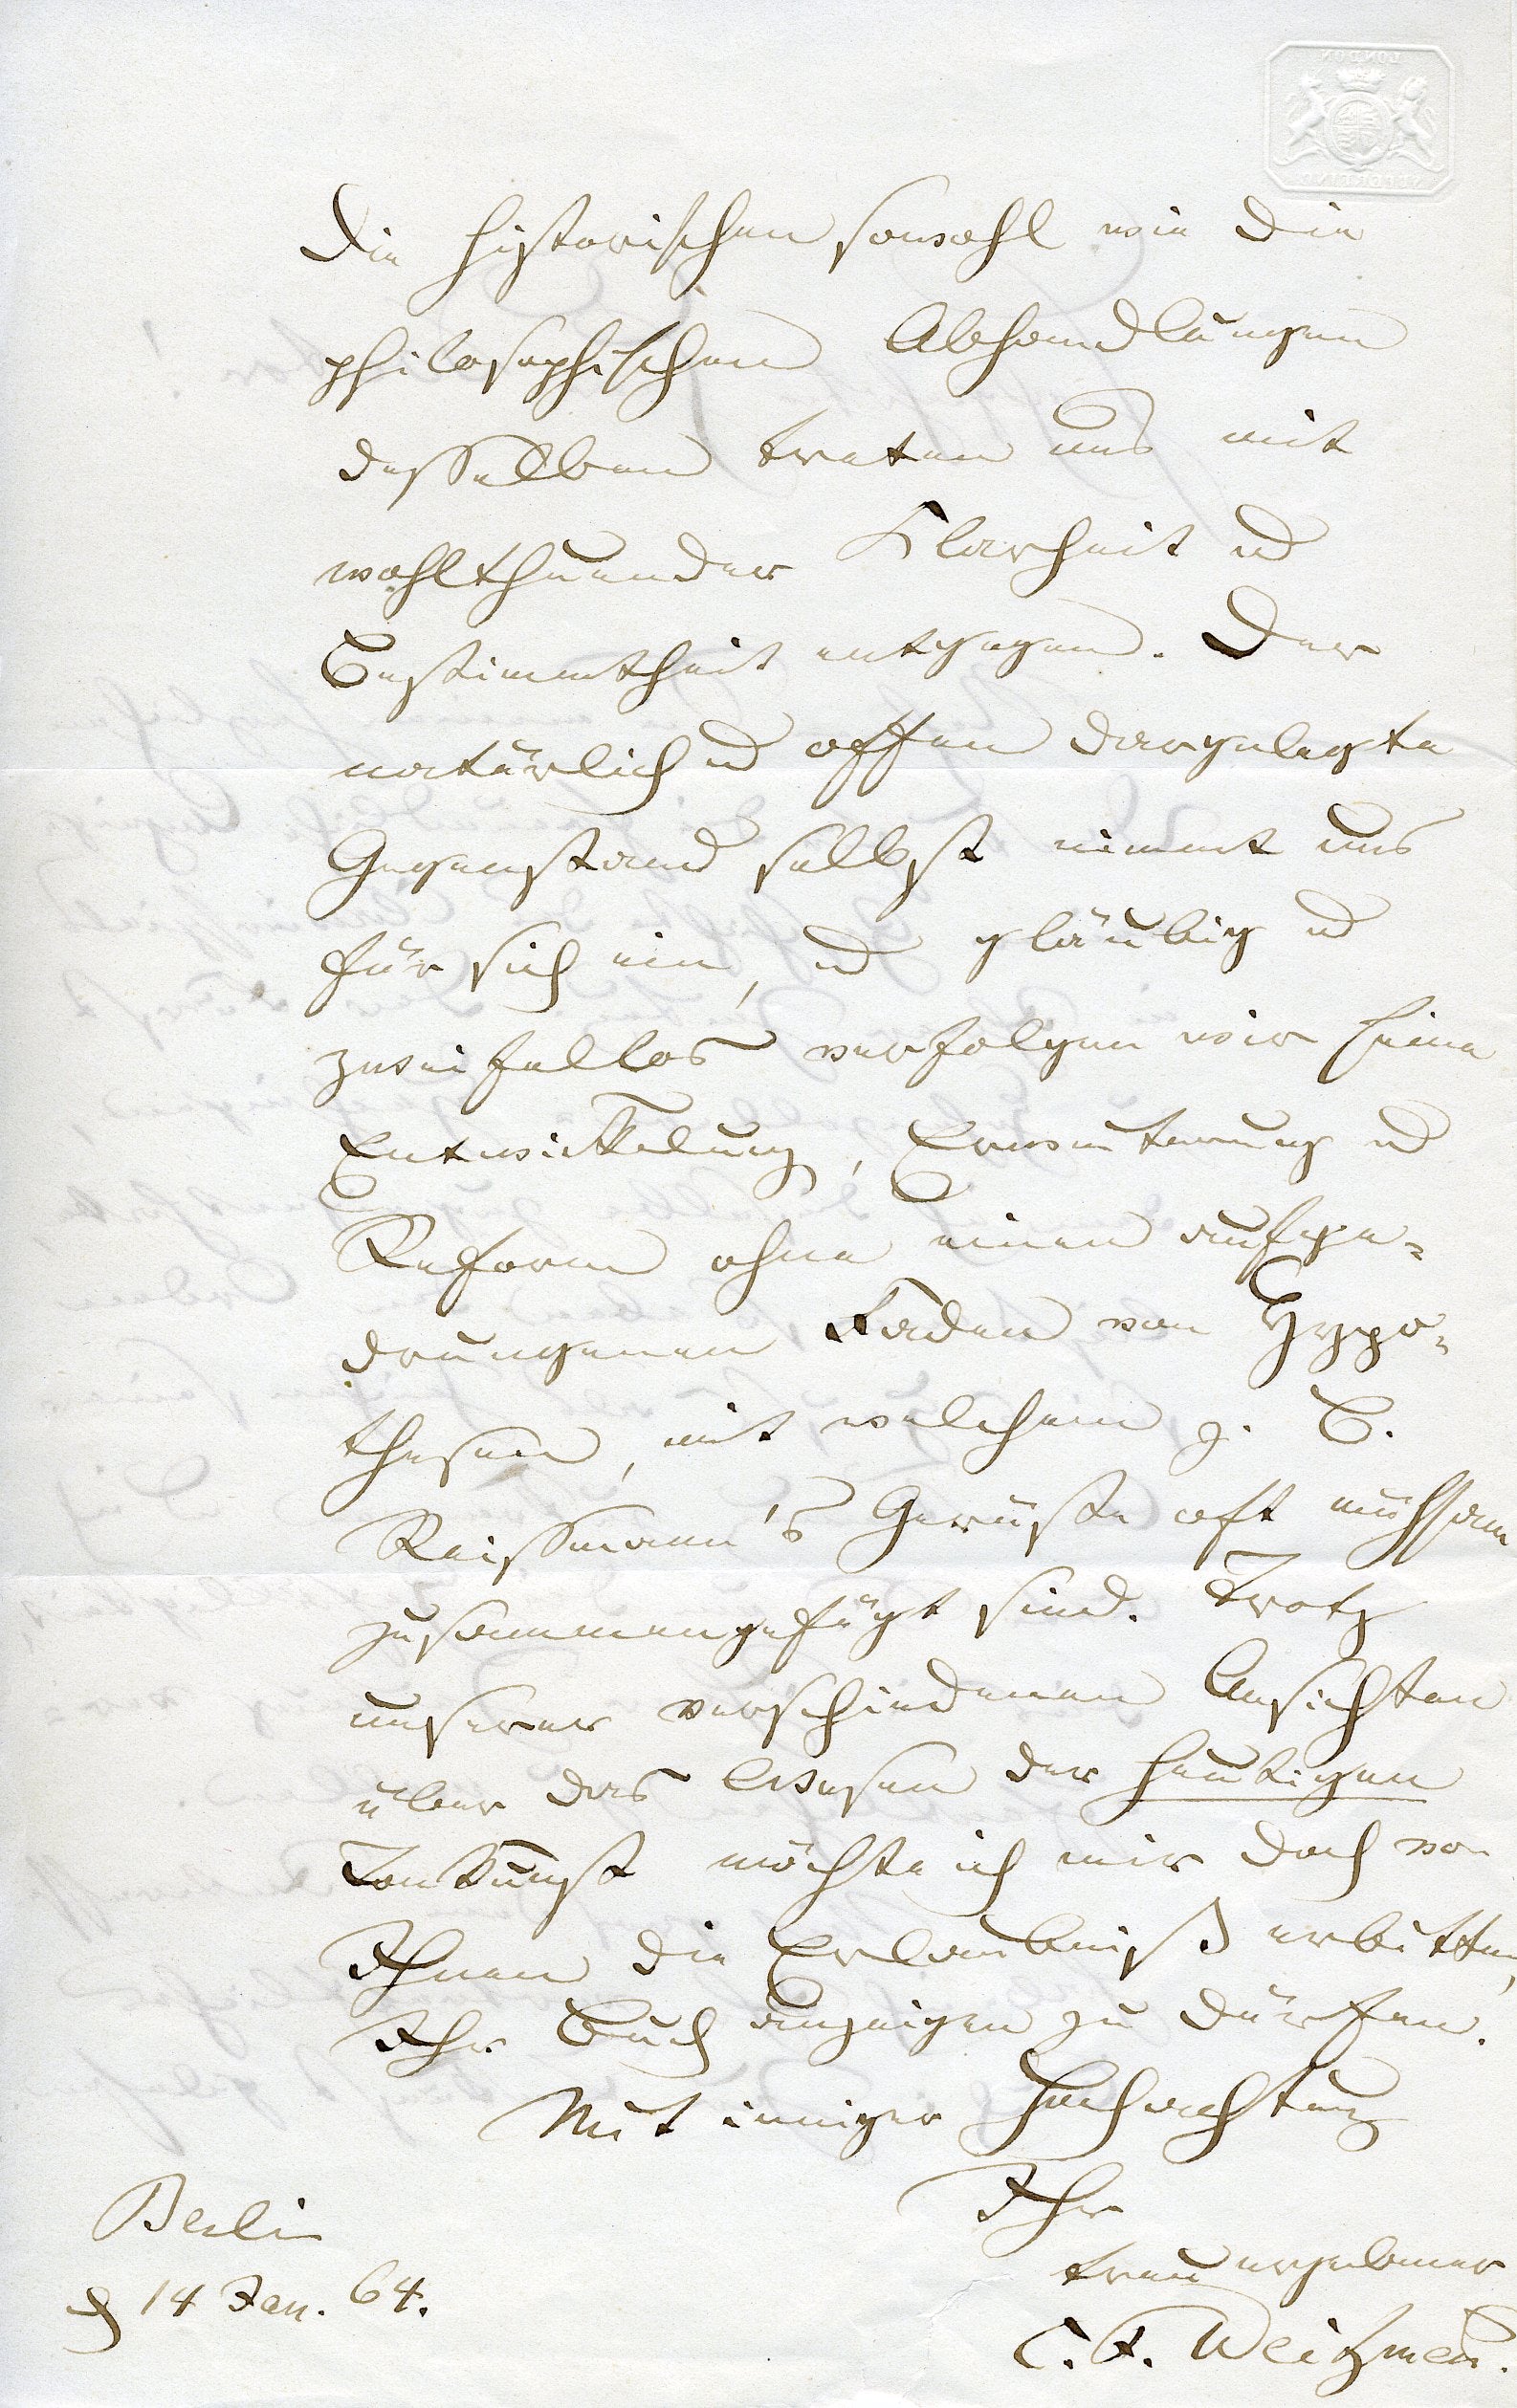 Die historischen sowohl wie die
philosophischen Abhandlungen
desselben treten uns mit
wohlthuender Klarheit u
Bestimmtheit entgegen. Der
natürlich u offen dargelegte
Gegenstand selbst nimmt uns
für sich ein, u gläubig u
zweifellos verfolgen wir seine
Entwickelung, Erweiterung u
Reform ohne einen aufge-
drungenen Faden von Hypo-
thesen, mit welchem z. B.
Reissmann's Gerüste oft mühsam
zusammengefügt sind. Trotz
unserer verschiedenen Ansichten
über das Wesen der heutigen
Tonkunst möchte ich mir doch von
Ihnen die Erlaubniß erbitten,
Ihr Buch anzeigen zu dürfen.
Mit inniger Hochachtung
Ihr
treu ergebener
C. F. Weitzmann.
Berlin
d 14 Jan. 64.